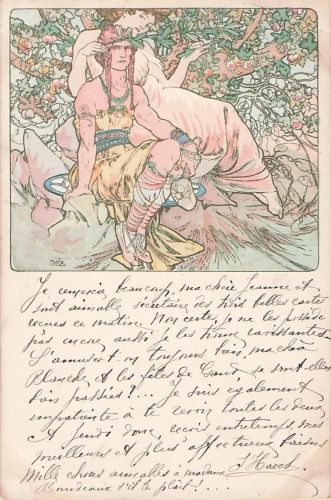 Mucha
Je remercie beaucoup, ma chère Jeanne et
son aimable secrétaire des trois belles cartes
reçues ce matin. Non certes, je ne les possède
pas encore, aussi je les trouve ravissantes.
S'amuse-t-on toujours bien, ma chère
Blanche, et les fêtes de Gand se sont-elles
bien passées?... Je suis également
impatiente à te revoir toutes les deux
A jeudi donc, recois entretemps, mes
meilleurs et plus affectueux baisers
Mille choses aimables à madame
s'il te plaît!...